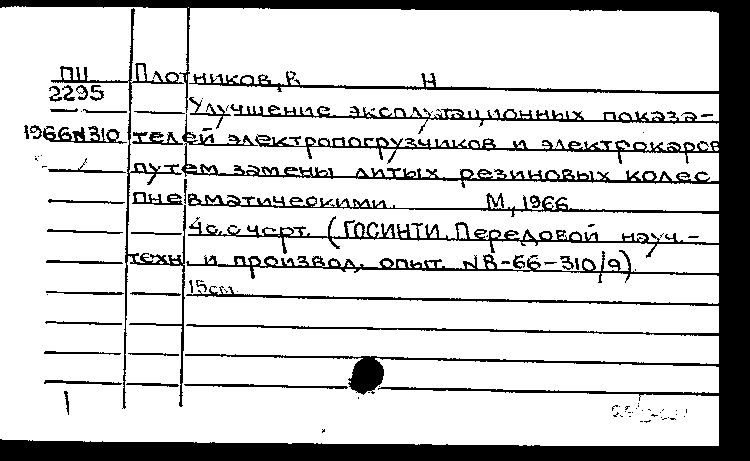 ПII Плотников, В Н
2295
Улучшение эксплутационных показа-
1966N310 телей электропогрузчиков и электрокаров
путем замены литых резиновых колес
пневматическими. М, 1966
4с. с черт. (ГОСИНТИ. Передовой науч.-
техн. и производ. опыт. N В-66-310/9)
15см.